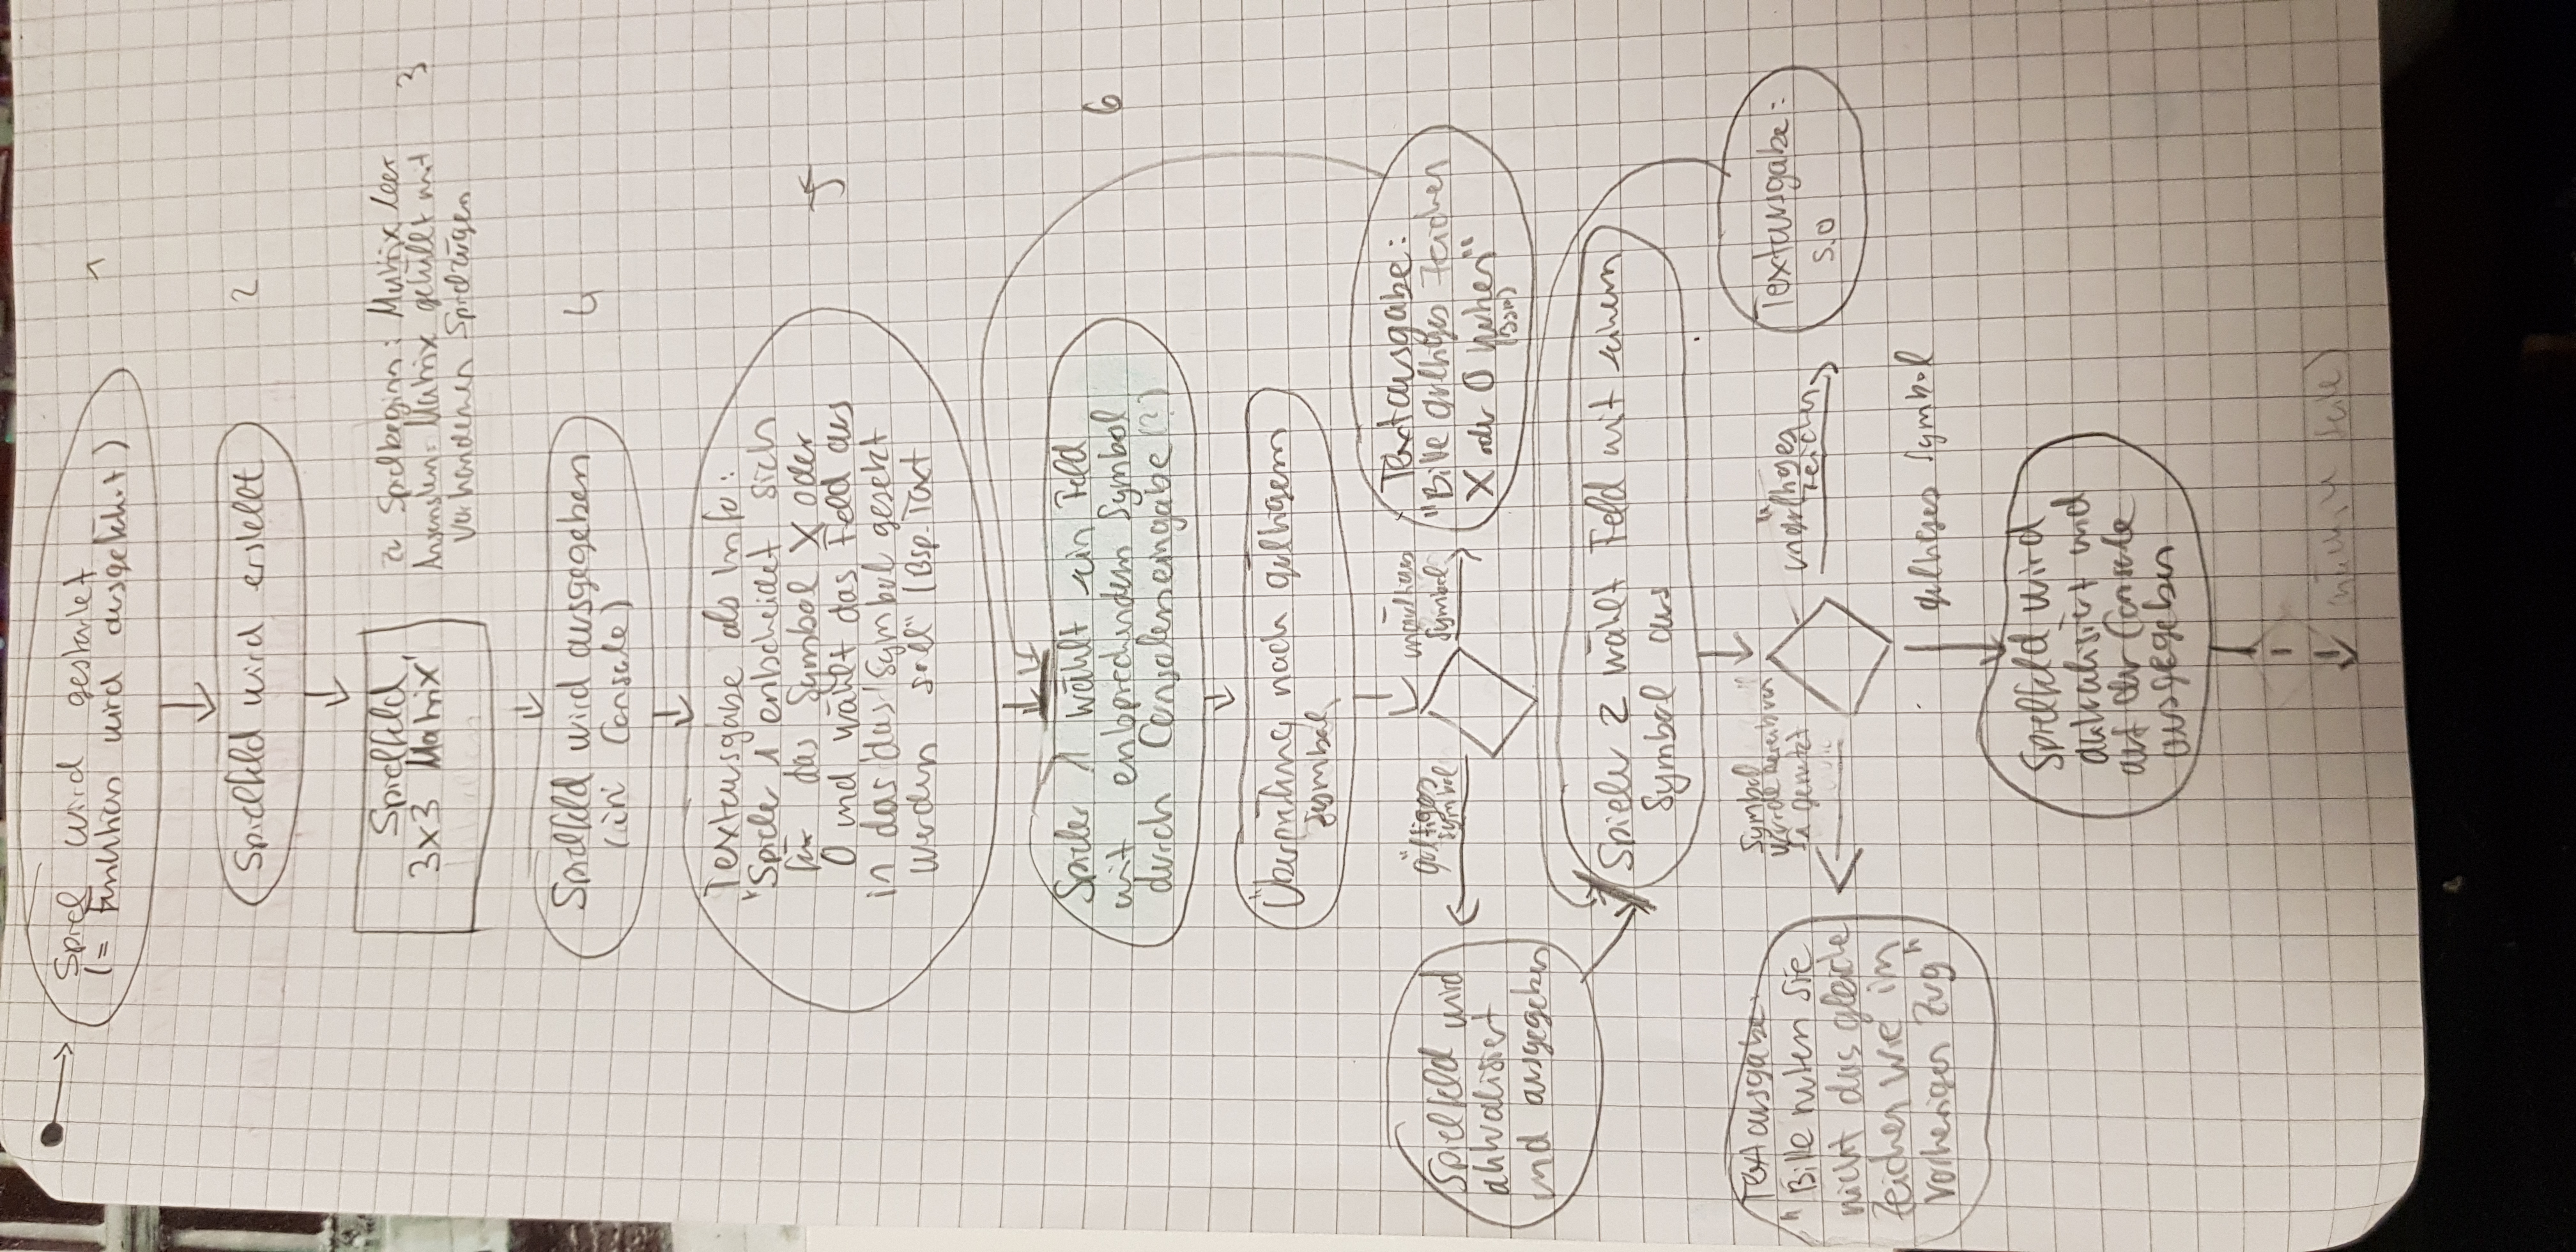 Spiel wird gestartet
(= Funktion wird ausgeführt)
1
Spielfeld wird erstellt
2
Spielfeld
3x3 Matrix
zu Spielbeginn: Matrix leer
Ansonsten: Matrix gefüllt mit
vorhandenen Spielzügen
3
Spielfeld wird ausgegeben
(in Console)
4
Textausgabe als Info:
"Spieler 1 entscheidet sich
für das Symbol X oder
O und wählt das Feld aus
in das das Symbol gesetzt
werden soll" (Bsp. Text
5
Spieler 1 wählt sein Feld
mit entsprechendem Symbol
durch Consoleneingabe (?)
6
Überprüfung nach gültigem
Symbol
gültiges
Symbol
ungültiges
Symbol
Textausgabe:
"Bitte gültiges Zeichen
X oder O nutzen"
(Bsp)
Spielfeld wird
aktualisiert
und ausgegeben
Spieler 2 wählt Feld mit seinem
Symbol aus
Symbol
wurde bereits von
genutzt
ungültiges
Zeichen
Textausgabe:
s.o
Textausgabe:
"Bitte nutzen Sie
nicht das gleiche
Zeichen wie im
vorherigen Zug"
gültiges Symbol
Spielfeld wird
aktualisiert und
auf der Console
ausgegeben
Seite)